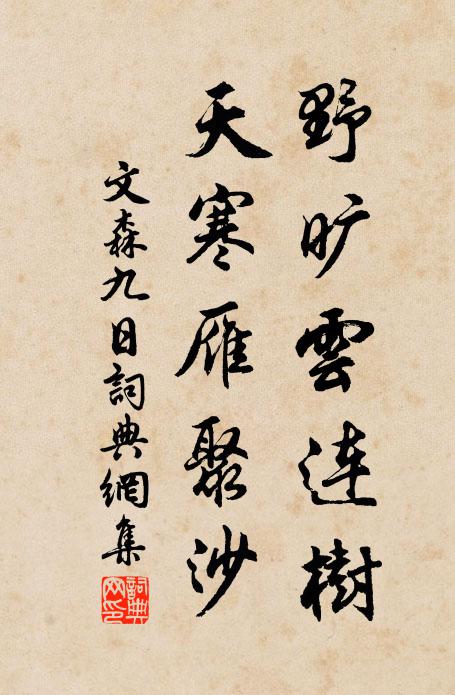 野旷雲连樹
天寒雁聚沙
文森九日詞典網集
詞典網印